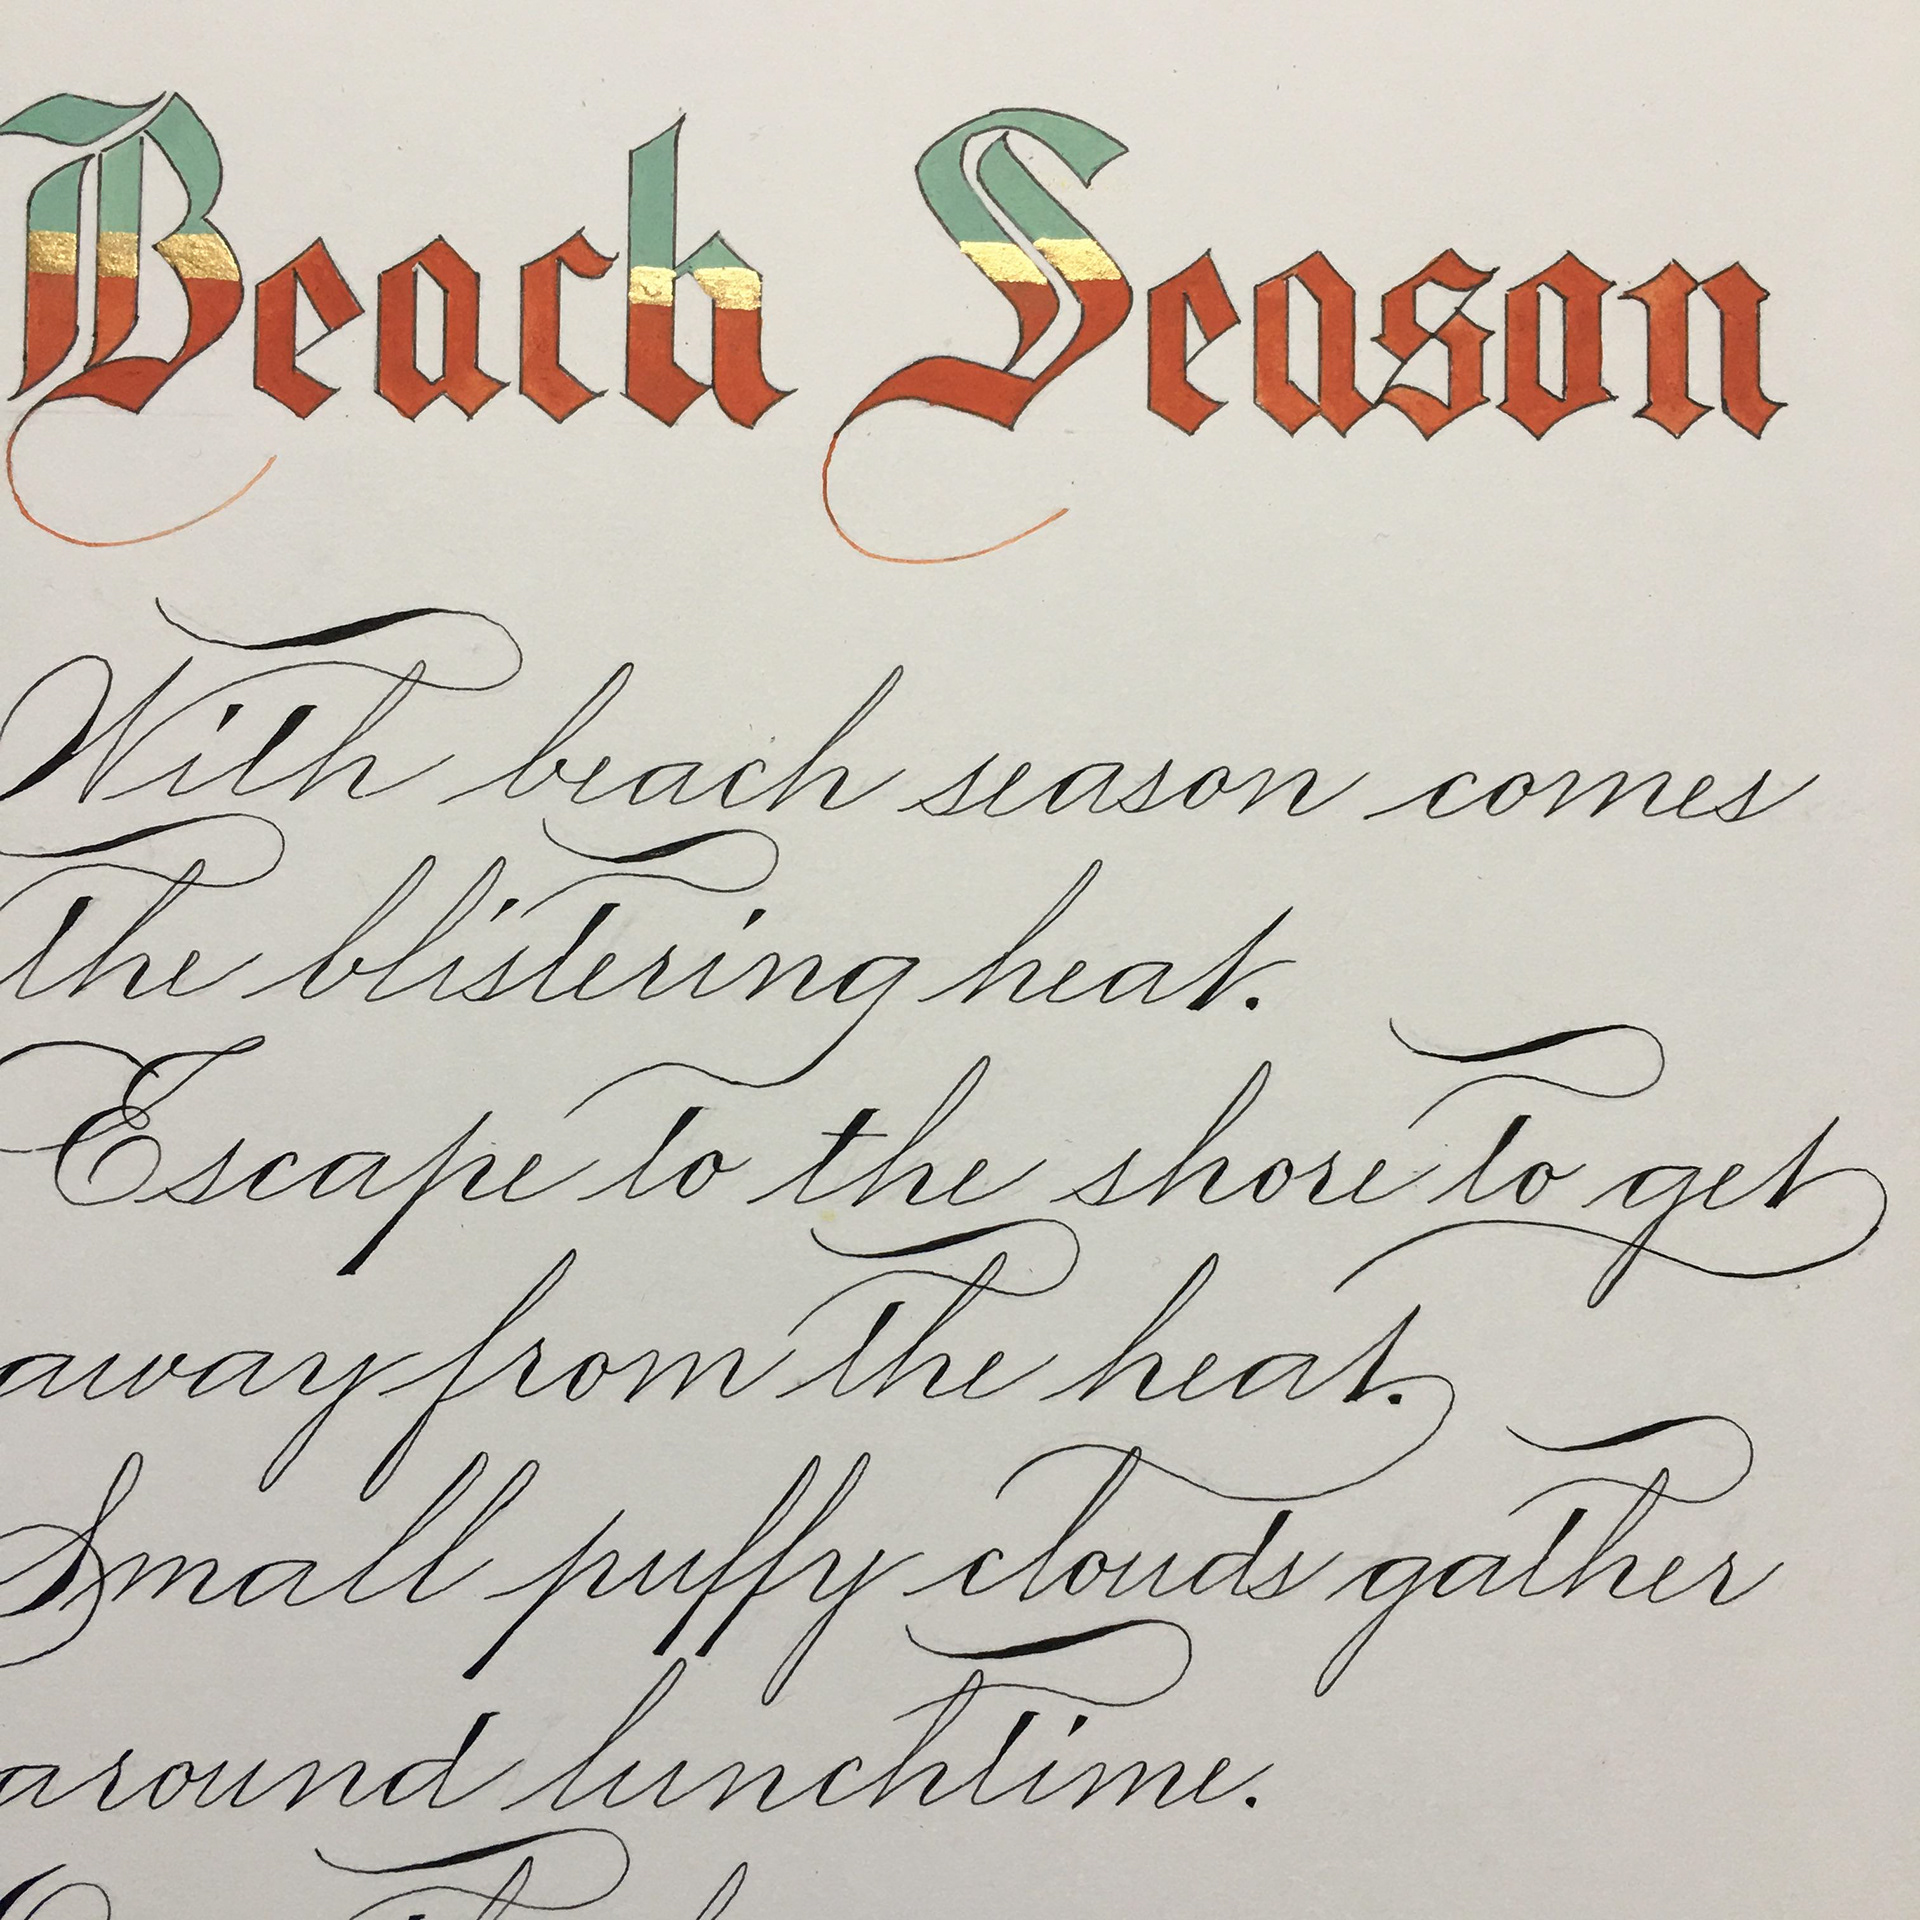 Beach Season
With beach season comes
the blistering heat.
Escape to the shore to get
away from the heat.
Small puffy clouds gather
around lunchtime.